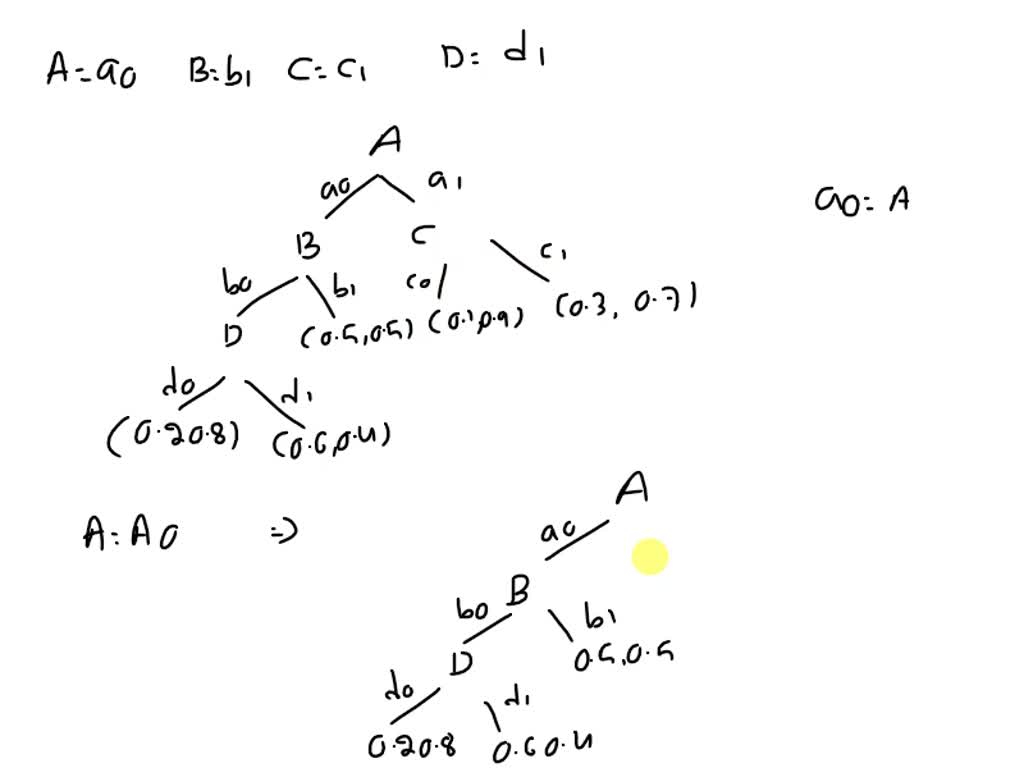 A=a0 B=b1 C=c1 D=d1
A
a0 a1
a0=A
B C
b0 b1 c0 c1
D (0.5,0.5) (0.1,0.9) (0.3, 0.7)
d0 d1
(0.2 0.8) (0.6,0.4)
A=A0 =>
A
a0
B
b0 b1
D 0.5,0.5
d0 d1
0.2 0.8 0.6 0.4